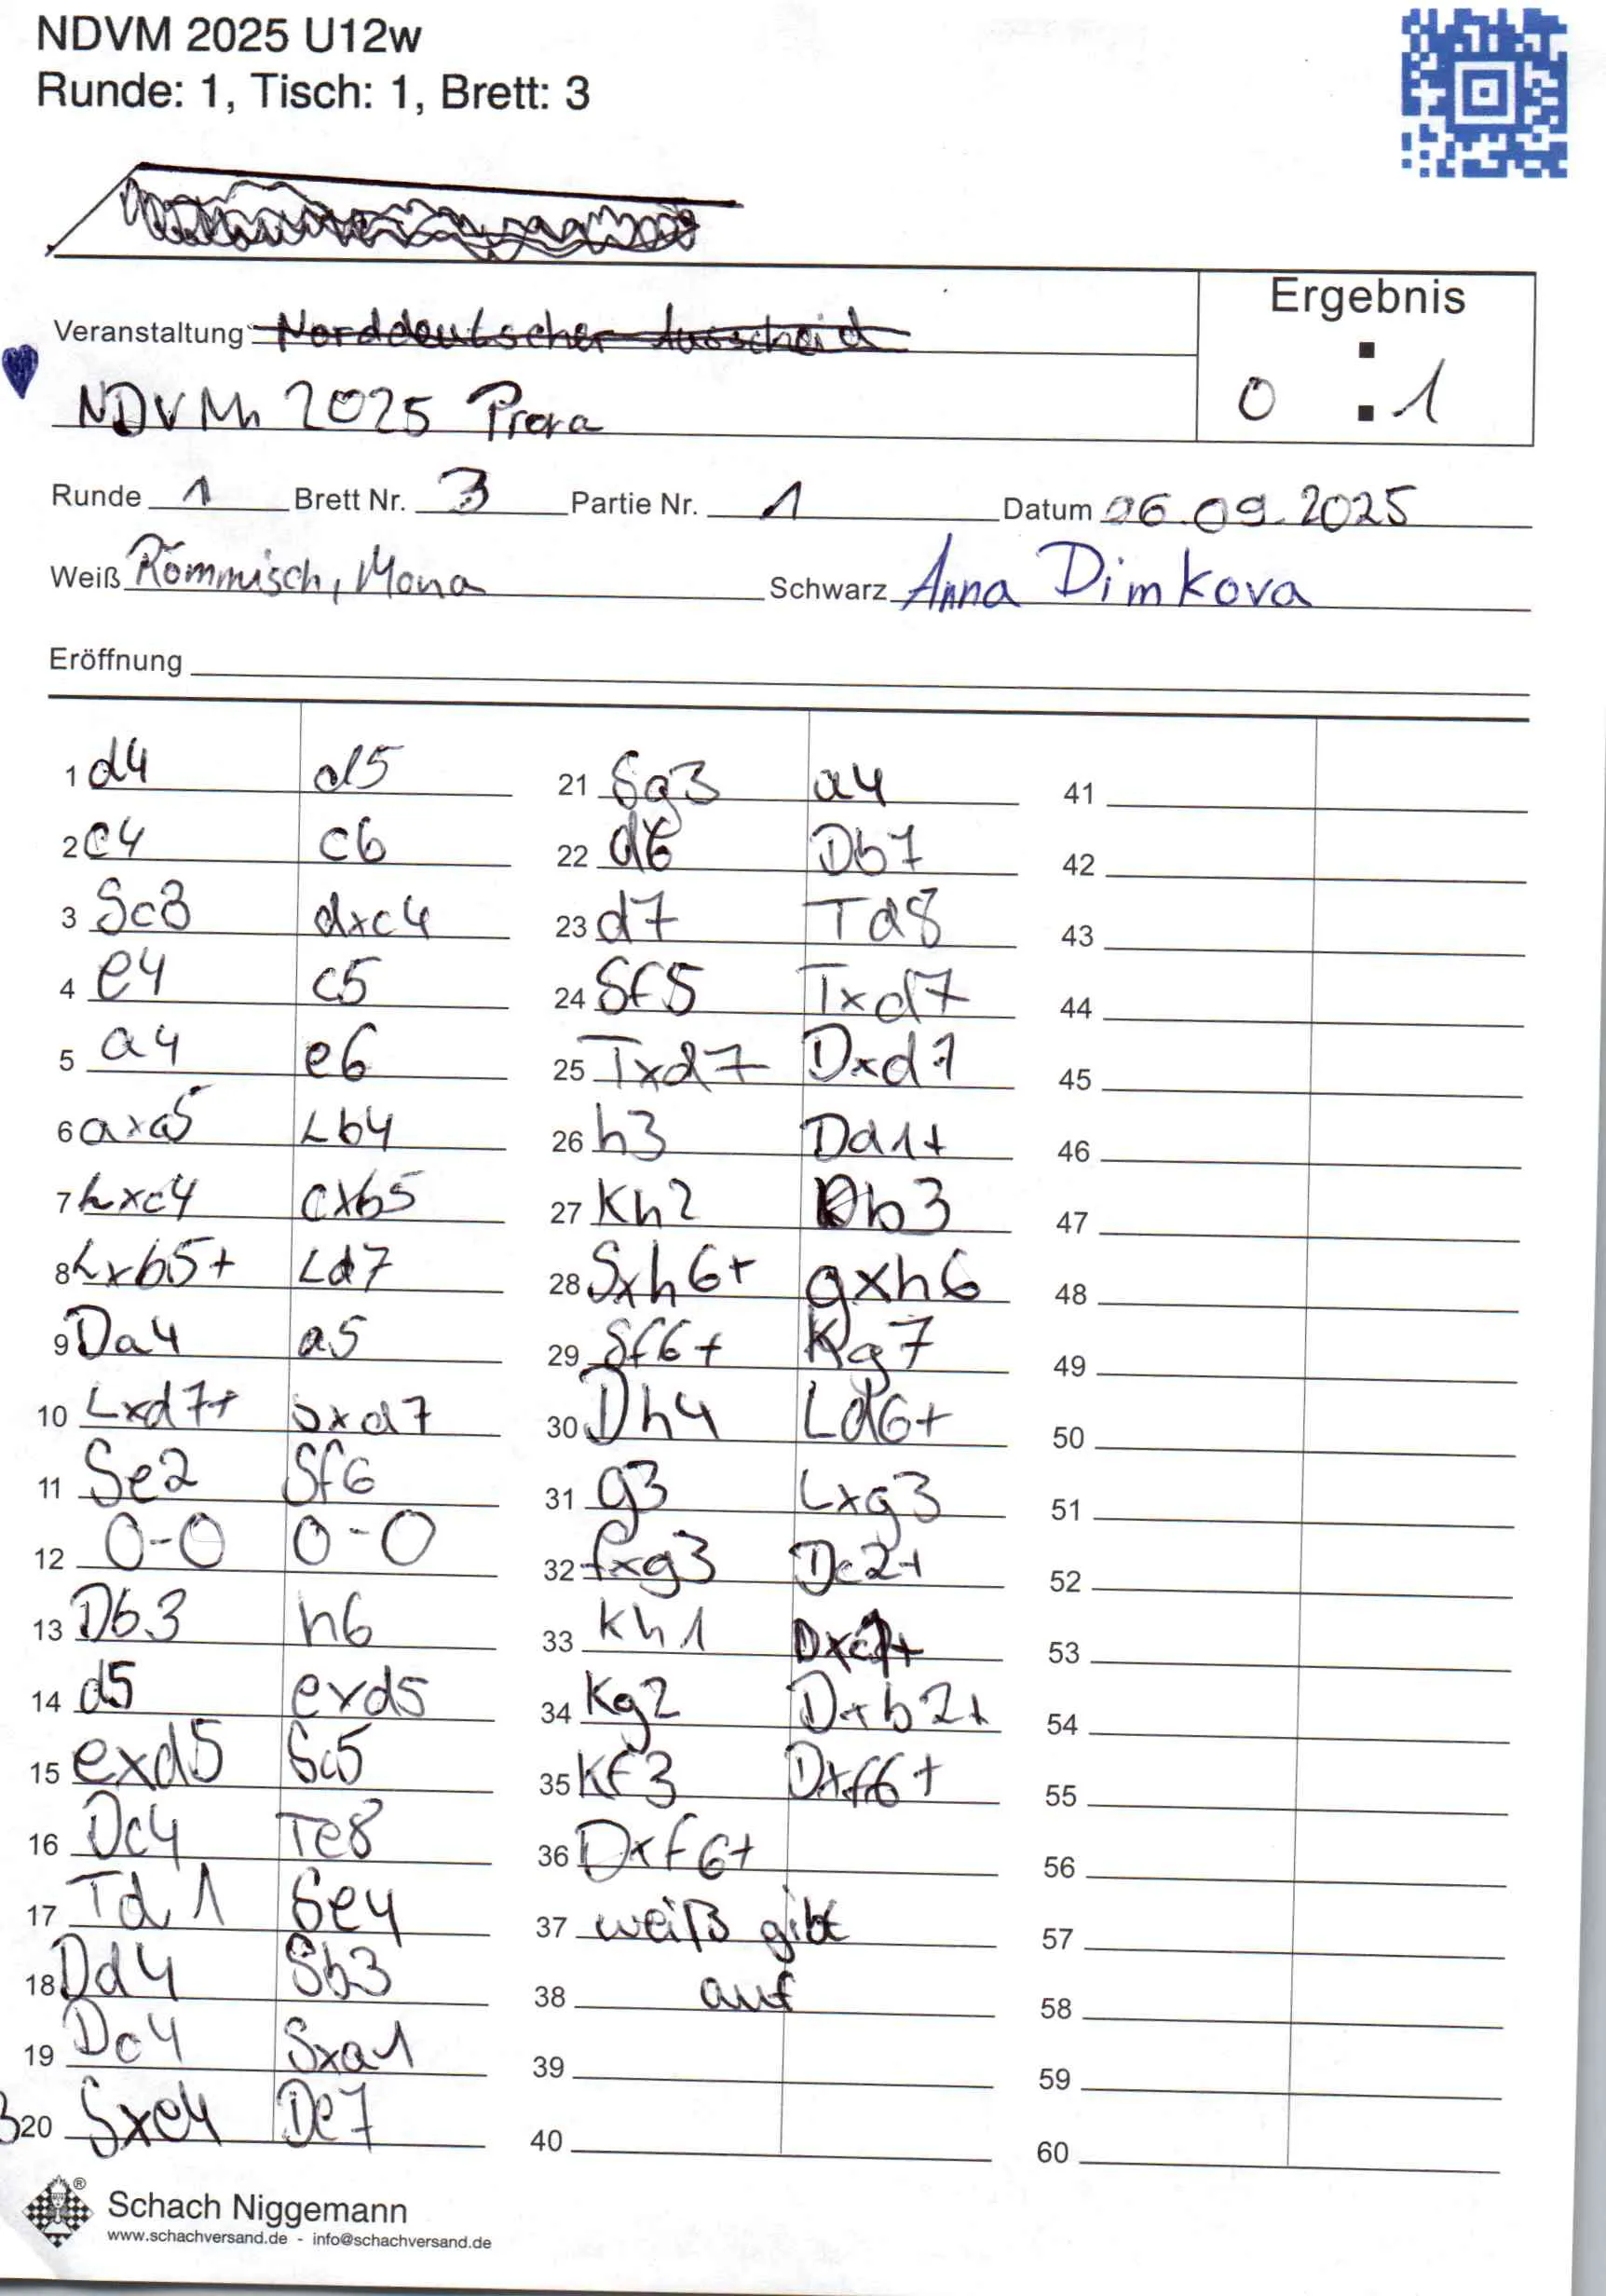 NDVM 2025 U12w
Runde: 1, Tisch: 1, Brett: 3
Ergebnis
Veranstaltung Norddeutscher Ausscheid
NDVM 2025 Prora
0 : 1
Runde 1 Brett Nr. 3 Partie Nr. 1 Datum 06.09.2025
Weiß Römmisch, Mona Schwarz Anna Dimkova
Eröffnung
1 d4 d5
2 c4 c6
3 Sc3 dxc4
4 e4 c5
5 a4 e6
6 axb5 Lb4
7 Lxc4 cxb5
8 Lxb5+ Ld7
9 Da4 a5
10 Lxd7+ Sxd7
11 Se2 Sf6
12 0-0 0-0
13 Db3 h6
14 d5 exd5
15 exd5 Sc5
16 Dc4 Te8
17 Td1 Se4
18 Dd4 Sb3
19 Dc4 Sxa1
20 Sxe4 De7
21 Sg3 a4
22 d6 Db7
23 d7 Td8
24 Sf5 Txd7
25 Txd7 Dxd7
26 h3 Dd1+
27 Kh2 Db3
28 Sxh6+ gxh6
29 Sf6+ Kg7
30 Dh4 Ld6+
31 g3 Lxg3
32 fxg3 Dc2+
33 Kh1 Dxc1+
34 Kg2 Dxb2+
35 Kf3 Dxf6+
36 Dxf6+
37 weiß gibt
38 auf
39
40
41
42
43
44
45
46
47
48
49
50
51
52
53
54
55
56
57
58
59
60
Schach Niggemann
www.schachversand.de - info@schachversand.de